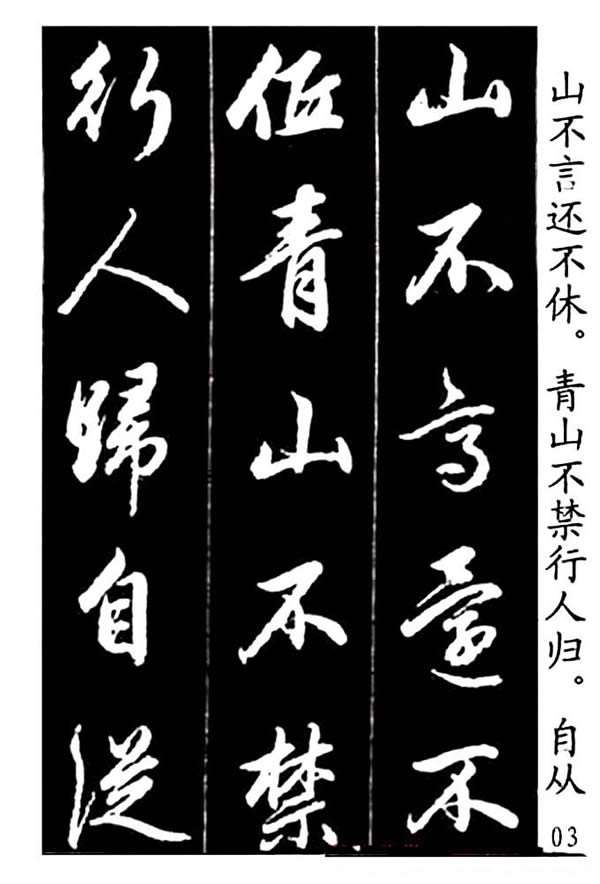 山不言还不休。青山不禁行人归。自从
03
山不高還不
低青山不禁
行人歸自從